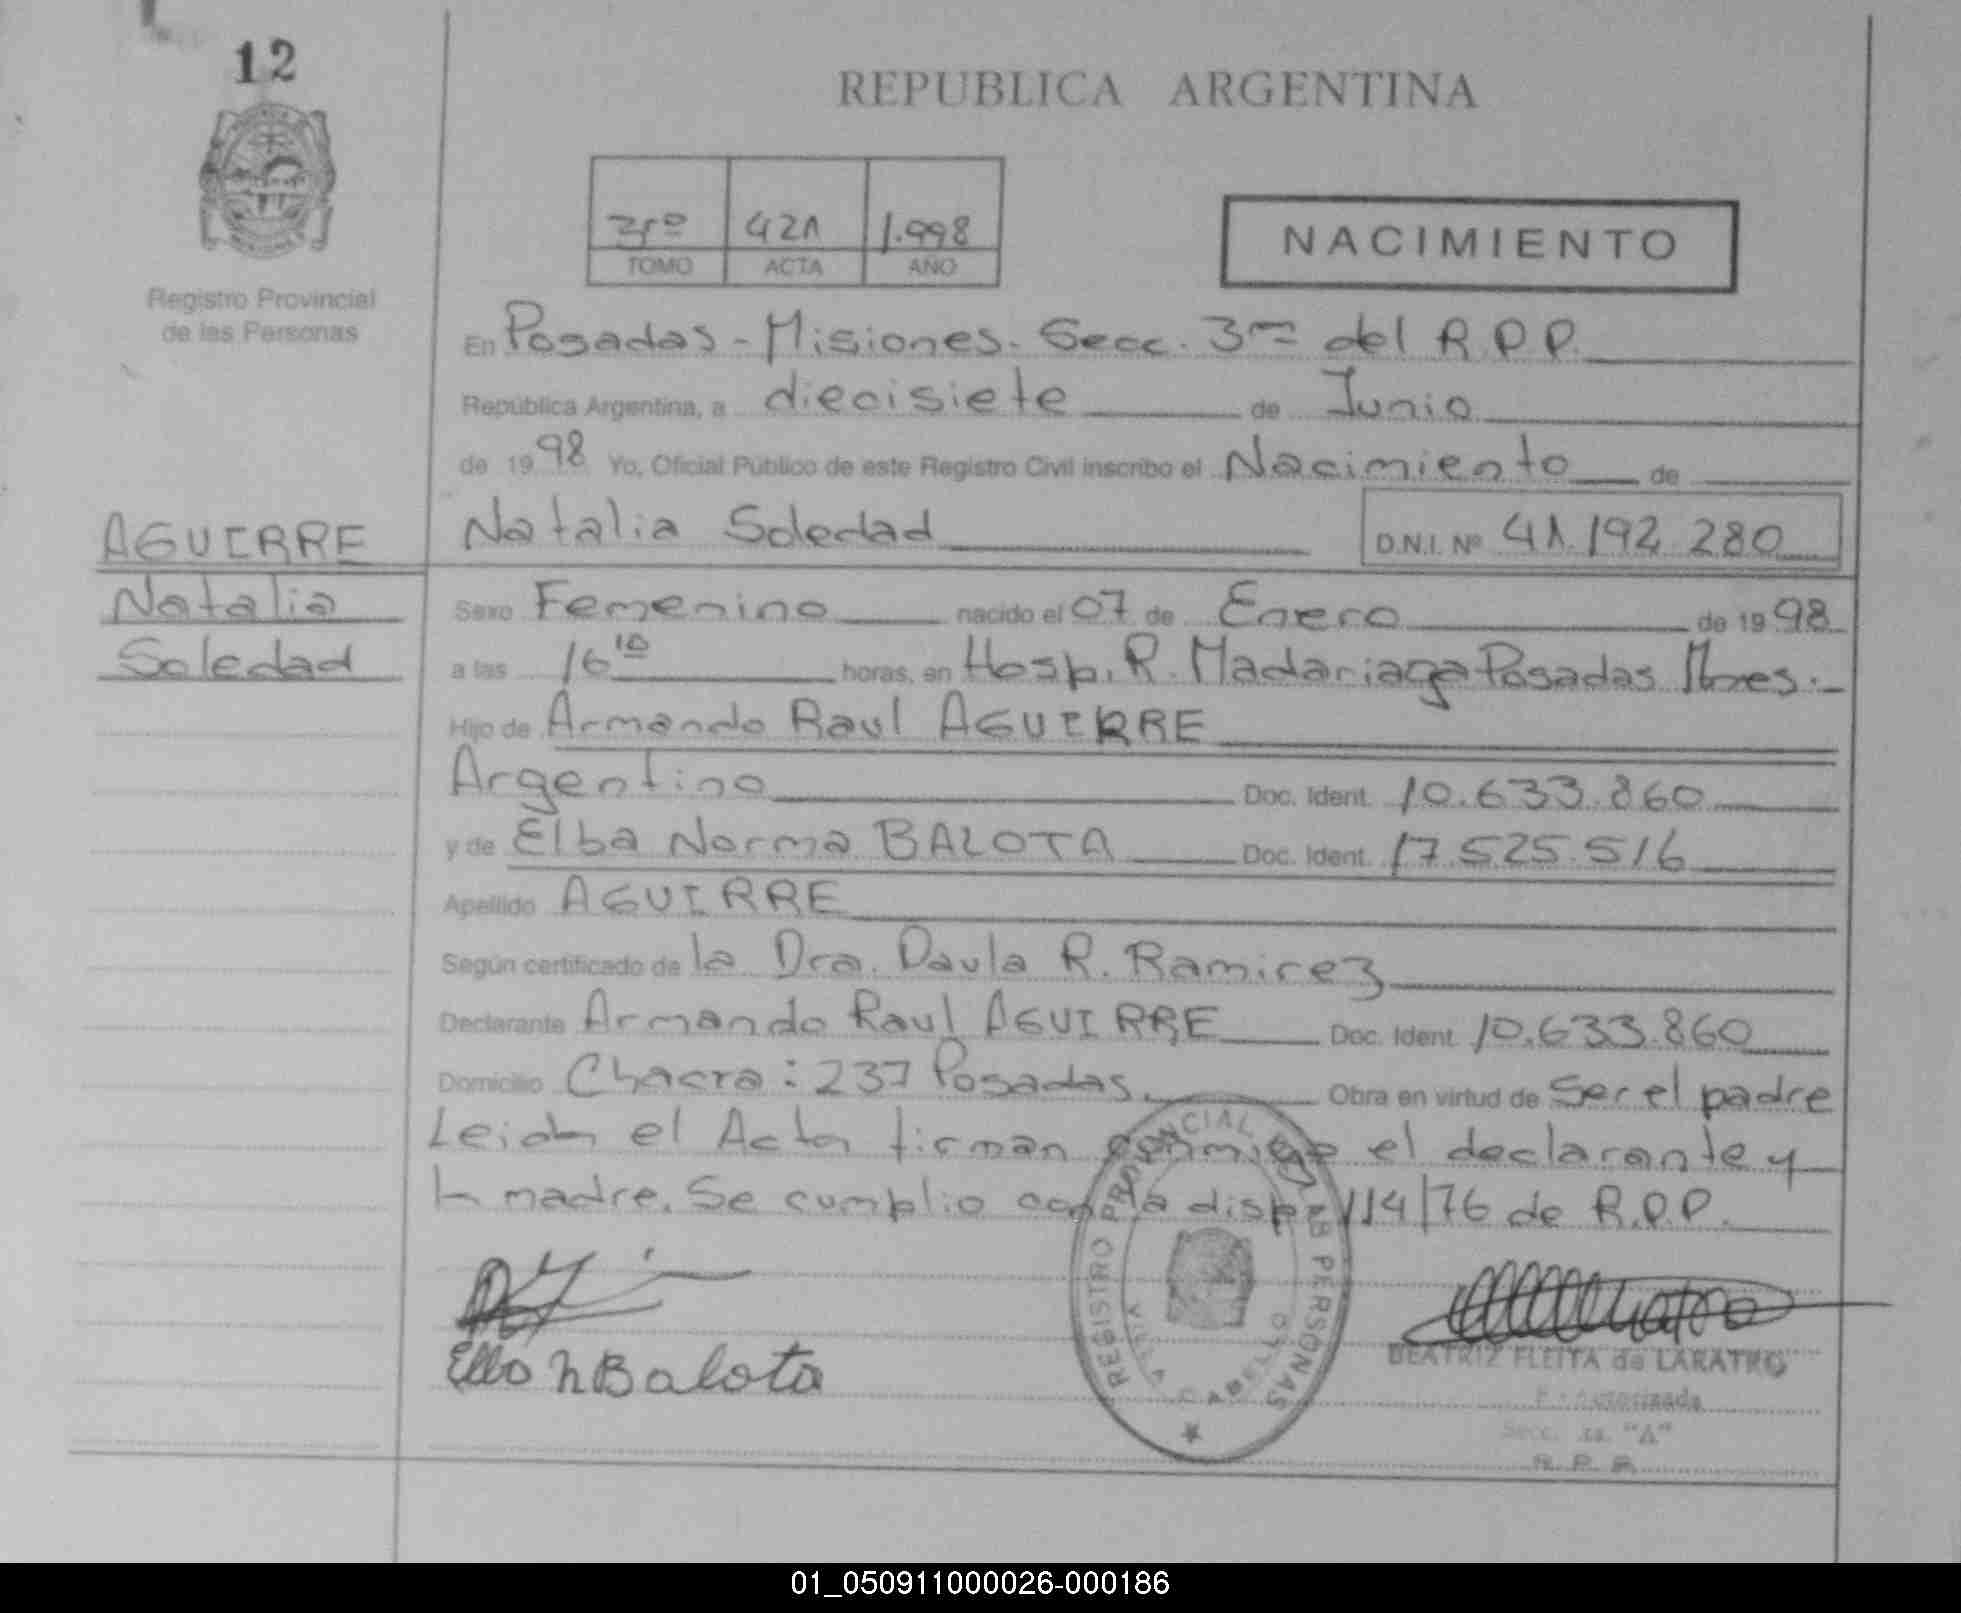 12
REPUBLICA ARGENTINA
3ro 421 1.998
TOMO ACTA AÑO
NACIMIENTO
Registro Provincial
de las Personas
En Posadas - Misiones. Secc. 3ra del R.P.P.
República Argentina, a diecisiete de Junio
de 1998 Yo, Oficial Público de este Registro Civil inscribo el Nacimiento de
AGUIRRE
Natalia
Soledad
Natalia Soledad D.N.I. Nº 41.192.280
Sexo Femenino nacido el 07 de Enero de 1998
a las 16 10 horas, en Hosp. R. Madariaga Posadas Mnes.-
Hijo de Armando Raul AGUIRRE
Argentino Doc. Ident. 10.633.860
y de Elba Norma BALOTA Doc. Ident. 17.525.516
Apellido AGUIRRE
Según certificado de la Dra. Paula R. Ramirez
Declarante Armando Raul AGUIRRE Doc. Ident. 10.633.860
Domicilio Chacra: 237 Posadas. Obra en virtud de Ser el padre
Leida el Acta firman conmigo el declarante y
la madre. Se cumplio con la disp. 114/76 de R.P.P.
REGISTRO PROVINCIAL DE LAS PERSONAS
VILLA CABELLO
Elba N Balota
BEATRIZ FLEITA de LARATRO
Autorizada
Secc. 3a. "A"
R. P. P.
01_050911000026-000186